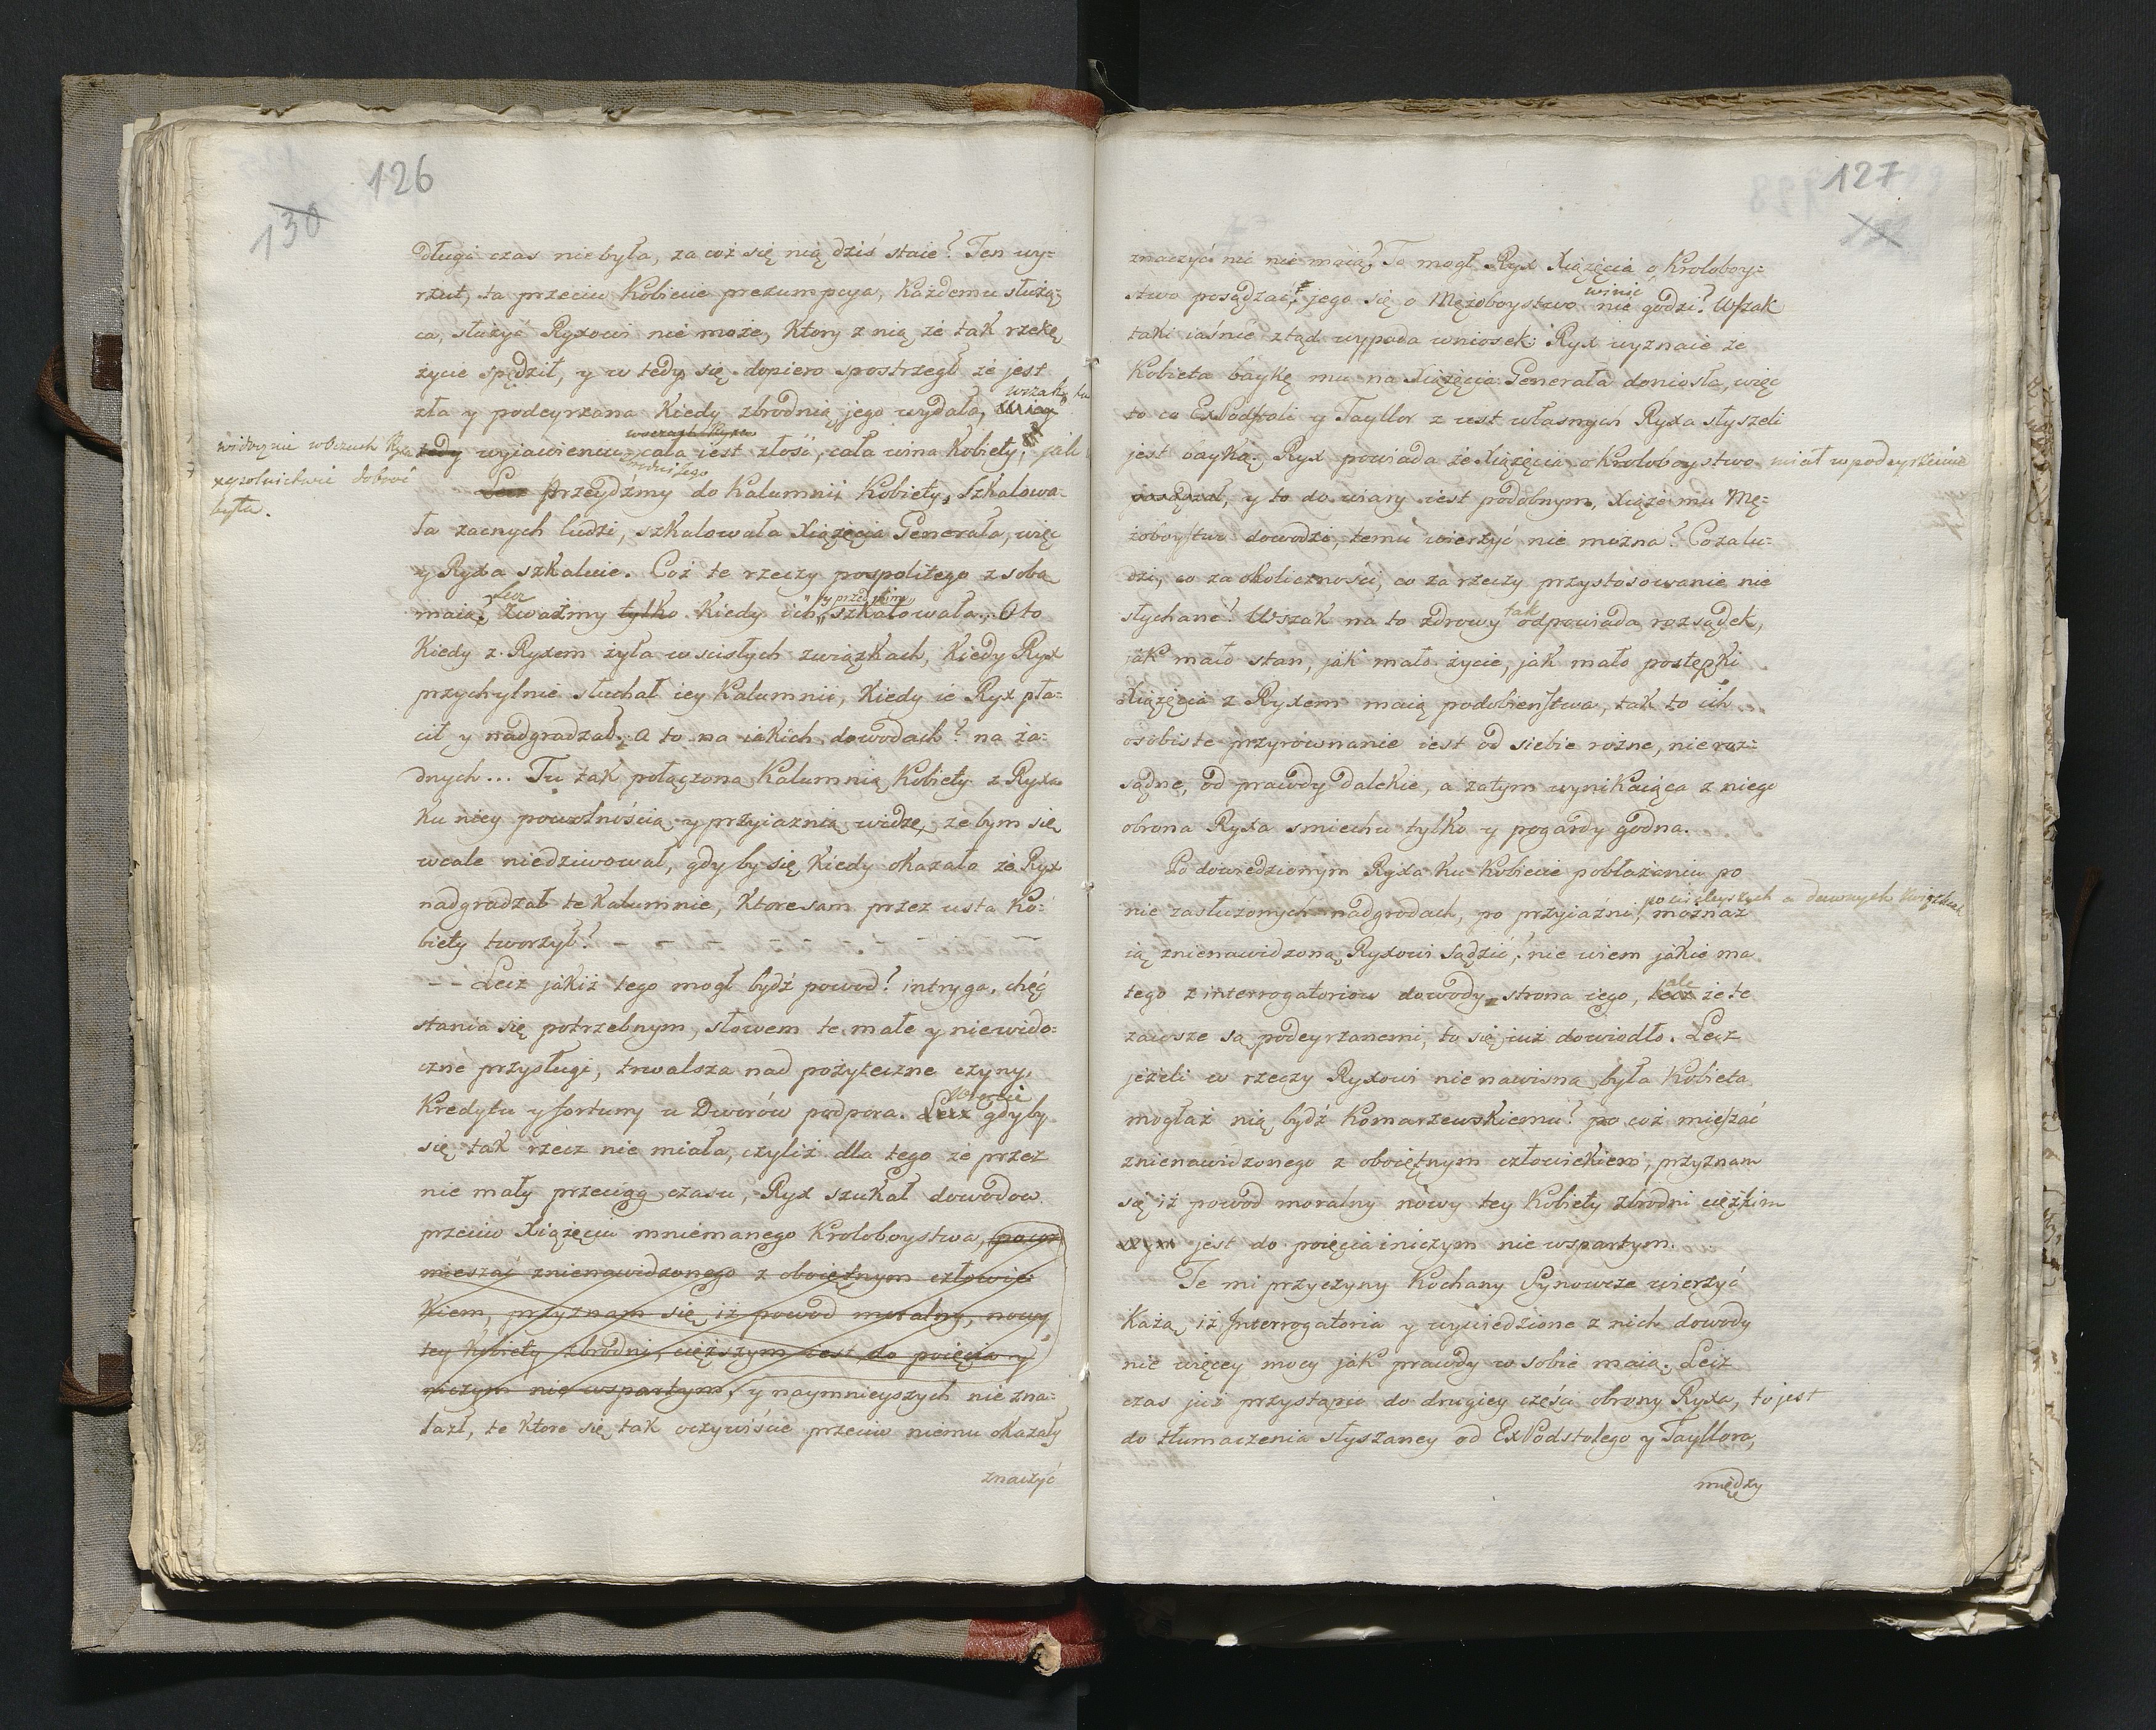 126
130
długi czas nie była, za coż się nią dziś staie? Ten wy-
rzut, ta przeciw Kobiecie prezumpcya, Każdemu służą-
ca, służyć Ryxowi nie może, Ktory z nią że tak rzekę
życie spędził, y w tedy się dopiero spostrzegł że jest
wszak tu
zła y podeyrzana Kiedy zbrodnią jego wydała,
w oczach Ryxa
tedy wyiawieniu cała iest złość, cała wina Kobiety, jak
widocznie w oczach Ryxa
wspolnictwie dobroć
była.
zbrodni jego
Lecz Przeydźmy do Kalumnii Kobiety, Szkalowa-
ła zacnych ludzi, szkalowała Xiążęcia Generała, więc
y Ryxa szkaluie. Coż te rzeczy pospolitego z sobą
Lecz
y przed kim
maią? Zważmy tylko Kiedy ich szkalowała. Oto
Kiedy z Ryxem żyła w scisłych związkach, Kiedy Ryx
przychylnie słuchał iey Kalumnii, Kiedy ie Ryx pła-
cił y nadgradzał, a to na iakich dowodach? na ża-
dnych... Tu tak połączoną Kalumnią Kobiety z Ryxa
Ku niey powolnością y przyiaznią widzę, że bym się
wcale niedziwował, gdy by się Kiedy okazało że Ryx
nadgradzał te Kalumnie, Ktore sam przez usta Ko-
biety tworzył? - - - - -
- - Lecz jakiż tego mogł bydź powod? intryga, chęć
stania się potrzebnym, słowem te małe y niewido-
czne przysługi, trwalsza nad pożyteczne czyny,
Kredytu y fortuny u Dworów podpora. Lecz gdyby
się tak rzecz nie miała, czyliż dla tego że przez
nie mały przeciąg czasu, Ryx szukał dowodow
przeciw Xiążęciu mniemanego Kroloboystwa, po coż
mieszać znienawidzonego z oboiętnym człowie-
Kiem, przyznam się iż powod moralny, nowy
tey Kobiety zbrodni, cięższym iest do poięcia y
niczym nie wspartym, y naymnieyszych nie zna-
lazł, te Ktore się tak oczywiście przeciw niemu okazały
znaczyć
127
znaczyć nic nie maią? To mogł Ryx Xiążęcia o Kroloboy-
winić
stwo posądzać, jego się o Mężoboystwo nie godzi? Wszak
taki iaśnie ztąd wypada wniosek: Ryx wyznaie że
Kobieta baykę mu na Xiążęcia Generała doniosła, więc
to co ExPodstoli y Tayllor z ust własnych Ryxa słyszeli
jest bayką. Ryx powiada że Xiążęcia o Kroloboystwo miał w podeyrzeniu
posądzał, y to do wiary iest podobnym, Xiąże mu Mę-
żoboystwa dowodzi, temu wierzyć nie można? Co za lu-
dzi, co za okoliczności, co za rzeczy przystosowanie nie
tak
słychane! Wszak na to zdrowy odpowiada rozsądek,
jak mało stan, jak mało życie, jak mało postępki
Xiążęcia z Ryxem maią podobieństwa, tak to ich
osobiste przyrównanie iest od siebie rożne, nie roz-
sądne, od prawdy dalekie, a zatym wynikaiąca z niego
obrona Ryxa smiechu tylko y pogardy godna.
Po dowiedzionym Ryxa Ku Kobiecie pobłażaniu po
po scisleyszych a dawnych związkach
nie zasłużonych nadgrodach, po przyiaźni, możnaż
ią znienawidzoną Ryxowi sądzić, nie wiem jakie ma
ale
tego z interrogatoriow dowody strona iego, lecz że te
zawsze są podeyrzanemi, to się iuż dowiodło. Lecz
jeżeli w rzeczy Ryxowi nienawisna była Kobieta
mogłaż nią bydź Komarzewskiemu? po coż mięszać
znienawidzonego z oboiętnym człowiekiem, przyznam
się iż powod moralny nowy tey Kobiety zbrodni ciężkim
jest do poięcia i niczym nie wspartym.
Te mi przyczyny Kochany Synowcze wierzyć
Każą, iż Interrogatoria y wywiedzione z nich dowody
nie więcey mocy jak prawdy w sobie maią. Lecz
czas już przystąpić do drugiey części obrony Ryxa, to jest
do tłumaczenia słyszaney od ExPodstolego y Tayllora,
między